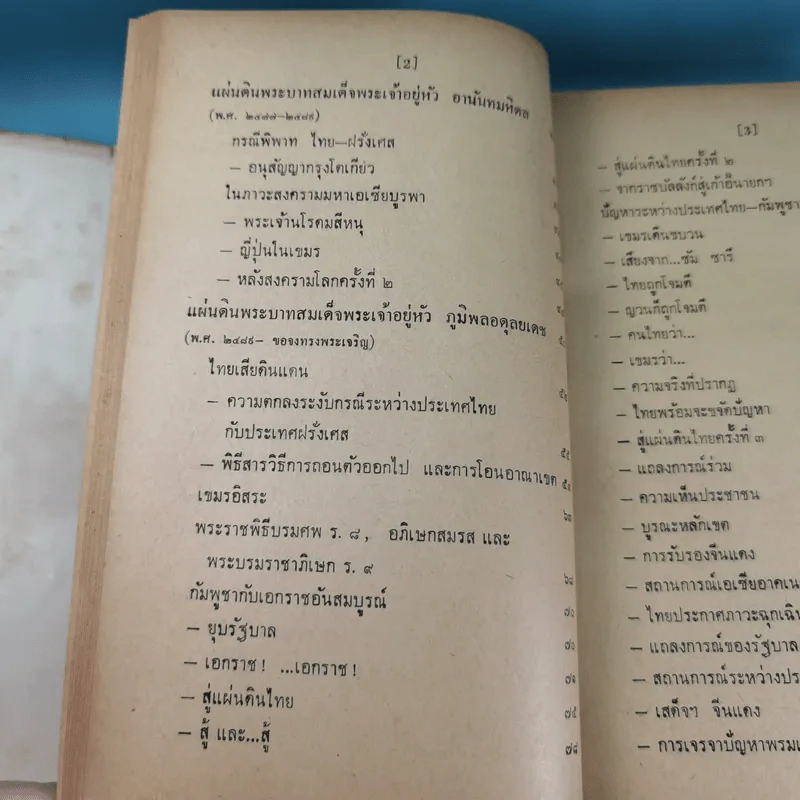 [2]
แผ่นดินพระบาทสมเด็จพระเจ้าอยู่หัว อานันทมหิดล
(พ.ศ. ๒๔๗๗–๒๔๘๙)
กรณีพิพาท ไทย–ฝรั่งเศส
– อนุสัญญากรุงโตเกียว
ในภาวะสงครามมหาเอเซียบูรพา
– พระเจ้านโรดมสีหนุ
– ญี่ปุ่นในเขมร
– หลังสงครามโลกครั้งที่ ๒
แผ่นดินพระบาทสมเด็จพระเจ้าอยู่หัว ภูมิพลอดุลยเดช
(พ.ศ. ๒๔๘๙– ขอจงทรงพระเจริญ)
ไทยเสียดินแดน
– ความตกลงระงับกรณีระหว่างประเทศไทย
กับประเทศฝรั่งเศส ๕๕
– พิธีสารวิธีการถอนตัวออกไป และการโอนอาณาเขต
เขมรอิสระ ๖๓
พระราชพิธีบรมศพ ร. ๘, อภิเษกสมรส และ
พระบรมราชาภิเษก ร. ๙ ๖๘
กัมพูชากับเอกราชอันสมบูรณ์ ๗๐
– ยุบรัฐบาล ๗๐
– เอกราช! ...เอกราช! ๗๑
– สู่แผ่นดินไทย ๗๕
– สู้ และ...สู้ ๗๘
[3]
– สู่แผ่นดินไทยครั้งที่ ๒
– จากราชบัลลังก์สู่เก้าอี้นายกฯ
ปัญหาระหว่างประเทศไทย–กัมพูชา
– เขมรเดินขบวน
– เสียงจาก...ซัม ซารี
– ไทยถูกโจมตี
– ญวนก็ถูกโจมตี
– คนไทยว่า...
– เขมรว่า...
– ความจริงที่ปรากฏ
– ไทยพร้อมจะขจัดปัญหา
– สู่แผ่นดินไทยครั้งที่ ๓
– แถลงการณ์ร่วม
– ความเห็นประชาชน
– บูรณะหลักเขต
– การรับรองจีนแดง
– สถานการณ์เอเซียอาคเนย์
– ไทยประกาศภาวะฉุกเฉิน
– แถลงการณ์ของรัฐบาล
– สถานการณ์ระหว่างประ
– เสด็จฯ จีนแดง
– การเจรจาปัญหาพรมแ